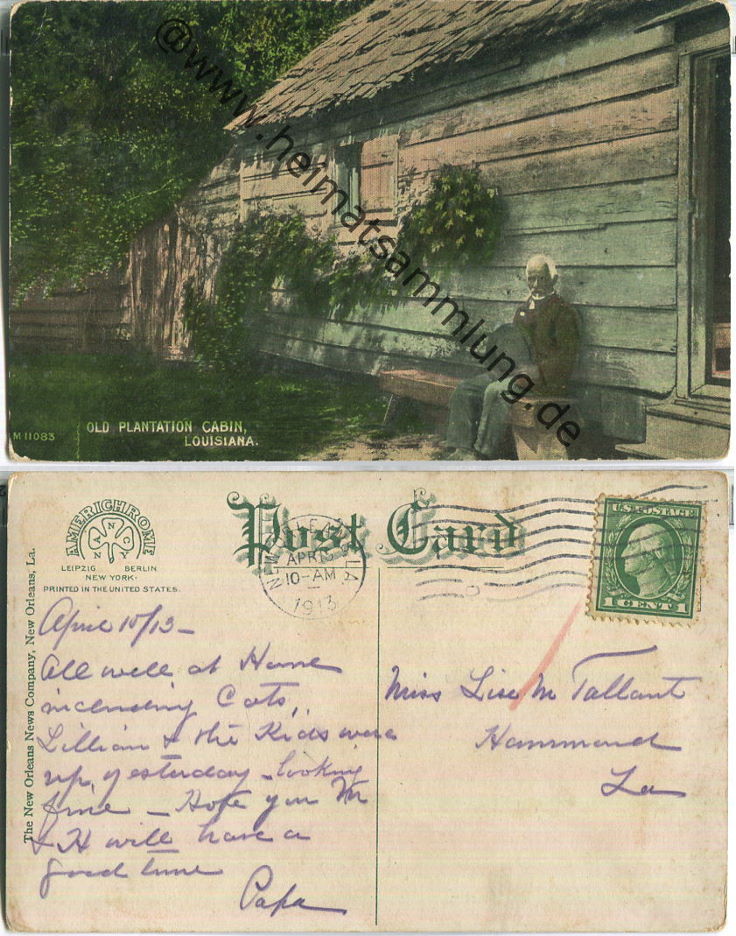 @www.heimatsammlung.de
M 11083
OLD PLANTATION CABIN,
LOUISIANA.
Post Card
AMERICHROME
ANNC
LEIPZIG BERLIN
NEW YORK
PRINTED IN THE UNITED STATES.
The New Orleans News Company, New Orleans, La.
NEW ORLEANS LA.
APR
10-AM
1913
U.S. POSTAGE
1 CENT 1
April 15/13 -
All well at Home
including Cats,
Lillian & the Kids were
up yesterday - looking
fine - Hope you M
& H will have a
good time
Papa
Miss Lise M Tallant
Hammond
La